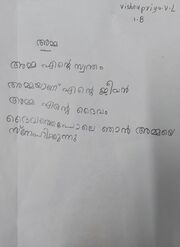 vishnupriya.V.L
1.B
അമ്മ
അമ്മ എന്റെ സ്വന്തം
അമ്മയാണ് എന്റെ ജീവൻ
അമ്മ എന്റെ ദൈവം
ദൈവത്തെപോലെ ഞാൻ അമ്മയെ
സ്നേഹിക്കുന്നു